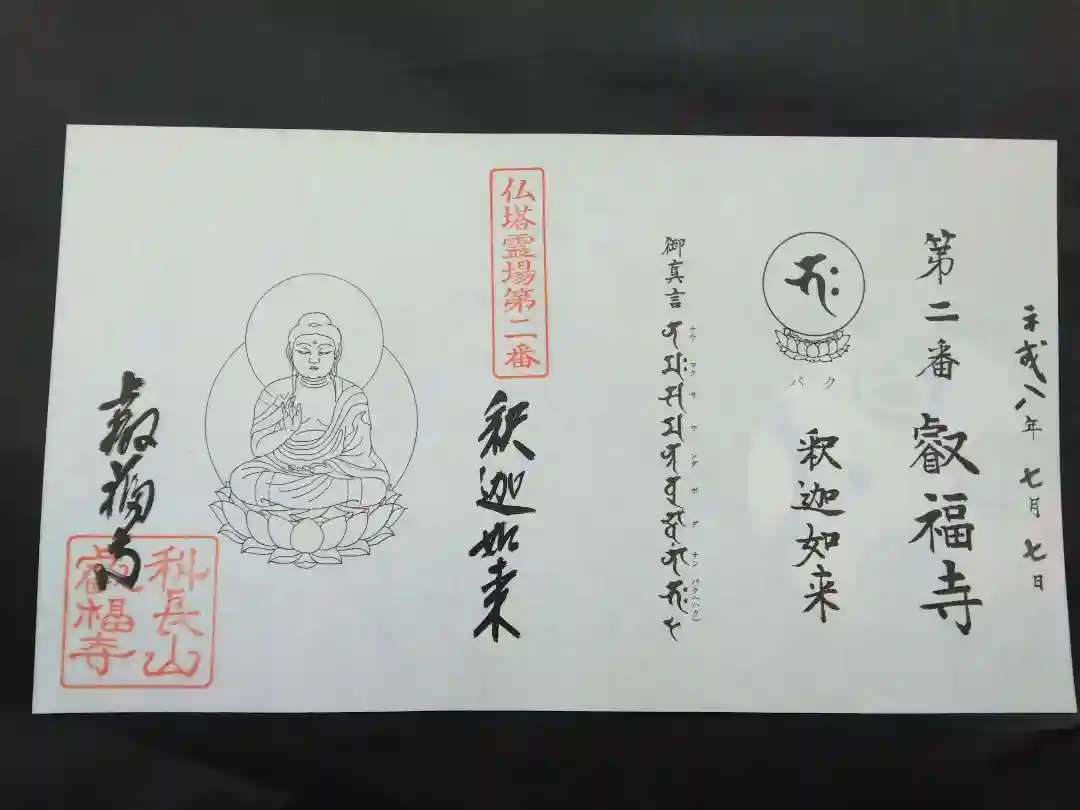 平成八年 七月 七日
第二番 叡福寺
バク
釈迦如来
御真言
ナウ マク サ マ ンダ ボ ダ ナン
仏塔霊場第二番
釈迦如来
叡福寺
科長山
叡福寺